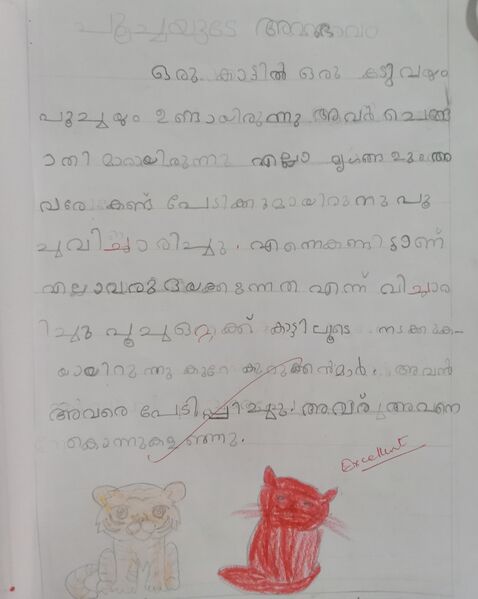 പൂച്ചയുടെ അഹങ്കാരം
ഒരു കാട്ടിൽ ഒരു കടുവയും
പൂച്ചയും ഉണ്ടായിരുന്നു അവർ ചെങ്ങ
ാതി മാരായിരുന്നു എല്ലാ മൃഗങ്ങളും അ
വരെ കണ്ട് പേടിക്കുമായിരുന്നു പൂ
ച്ചവിച്ചാരിച്ചു. എന്നെകണ്ടിട്ടാണ്
എല്ലാവരും ഭയക്കുന്നത് എന്ന് വിച്ചാര
ിച്ചു പൂച്ച ഒറ്റക്ക് കാട്ടിലൂടെ നടക്കുക-
യായിരുന്നു കുറേ കുറുക്കൻമാർ. അവൻ
അവരെ പേടിപ്പിച്ചു. അവര് അവനെ
കൊന്നുകളഞ്ഞു.
Excellent